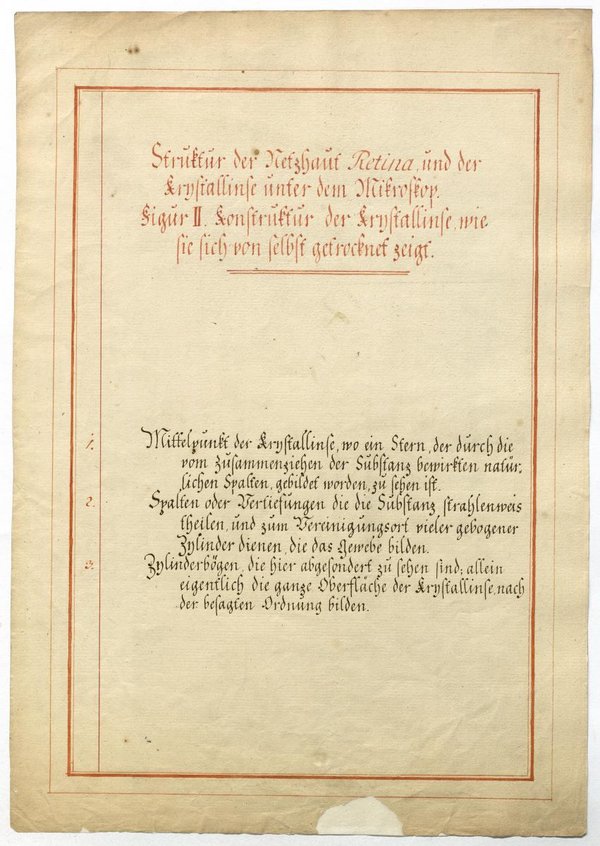 Struktur der Netzhaut Retina, und der
Krystallinse unter dem Mikroskop.
Figur II. Konstruktur der Krystallinse, wie
sie sich von selbst getrocknet zeigt.
1. Mittelpunkt der Krystallinse, wo ein Stern, der durch die
vom Zusammenziehen der Substanz bewirkten natür-
lichen Spalten, gebildet worden, zu sehen ist.
2. Spalten oder Vertiefungen die die Substanz strahlenweis
theilen, und zum Vereinigungsort vieler gebogener
Zylinder dienen, die das Gewebe bilden.
3. Zylinderbögen, die hier abgesondert zu sehen sind; allein
eigentlich die ganze Oberfläche der Krystallinse, nach
der besagten Ordnung bilden.